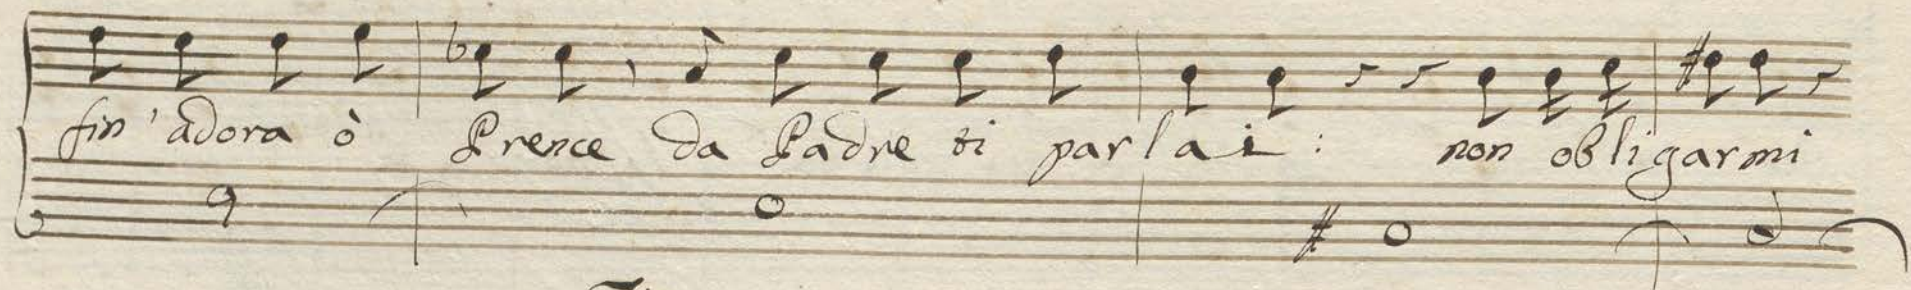 fin' adora ò Prence da Padre ti parlai: non obligarmi